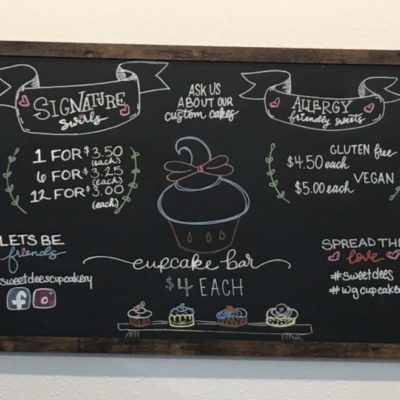 SIGNATURE
swirls
1 FOR $3.50
(each)
6 FOR $3.25
(each)
12 FOR $3.00
(each)
ASK US
ABOUT OUR
custom cakes
ALLERGY
friendly sweets
GLUTEN free
$4.50 each
VEGAN
$5.00 each
LETS BE
friends
sweetdeescupcakery
cupcake bar
$4 EACH
SPREAD THE
love
#sweetdees
#wgcupcakery